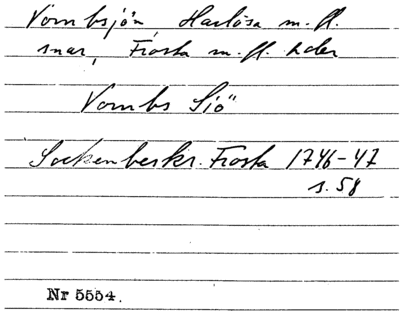 Vombsjön Harlösa m. fl.
snar, Frosta m. fl. hder
Vombs Siö"
Sockenbeskr. Frosta 1746-47
s. 58
Nr 5554.